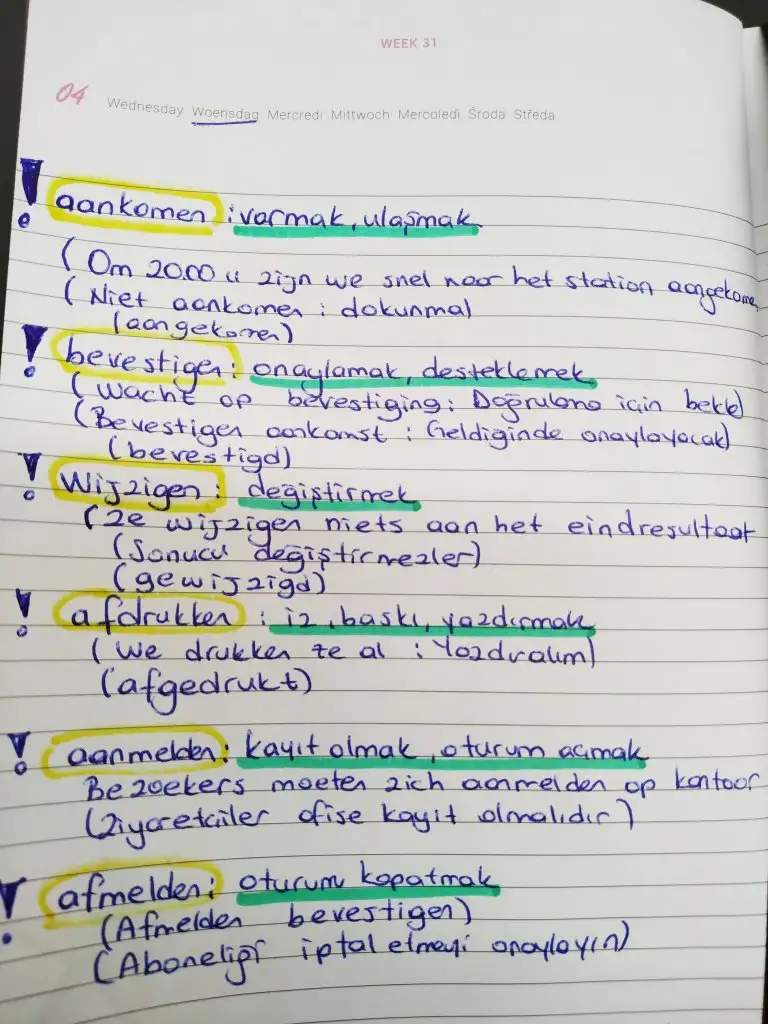 WEEK 31
04 Wednesday Woensdag Mercredi Mittwoch Mercoledi Środa Středa
! aankomen : varmak, ulaşmak
(Om 20.00 u zijn we snel naar het station aangekomen
(Niet aankomen : dokunma)
(aangekomen)
! bevestigen : onaylamak, desteklemek
(Wacht op bevestiging : Doğrulama için bekle)
(Bevestigen aankomst : Geldiginde onaylayacak)
(bevestigd)
! Wijzigen : değiştirmek
(Ze wijzigen niets aan het eindresultaat
(Sonucu değiştirmezler)
(gewijzigd)
! afdrukken : iz, baskı, yazdırmak
(We drukken ze al : Yazdıralım)
(afgedrukt)
! aanmelden : kayıt olmak, oturum açmak
Bezoekers moeten zich aanmelden op kantoor
(Ziyaretciler ofise kayıt olmalıdır)
! afmelden : oturum kapatmak
(Afmelden bevestigen)
(Aboneliği iptal etmeyi onaylayın)